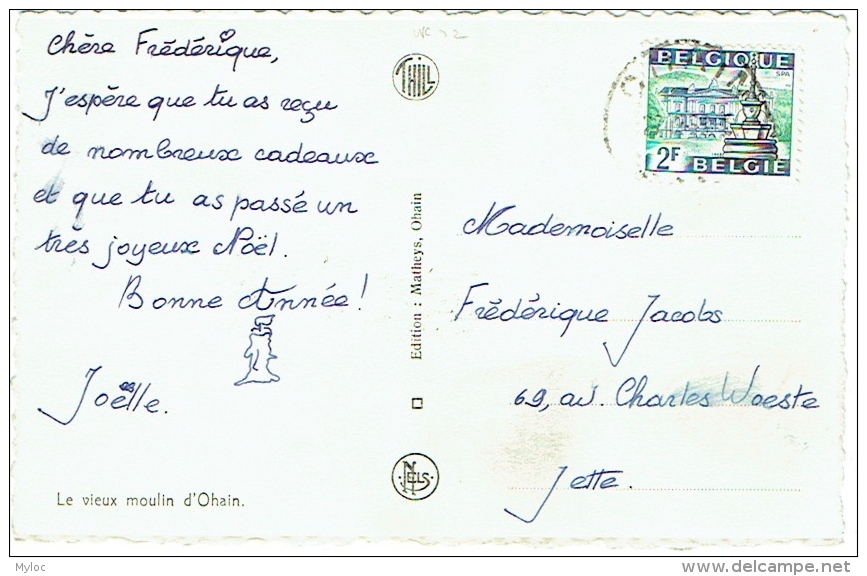 Chère Frédérique,
J'espère que tu as reçu
de nombreux cadeaux
et que tu as passé un
très joyeux Noël.
Bonne Année!
Joëlle.
Le vieux moulin d'Ohain.
THILL
Edition : Matheys, Ohain
NELS
BELGIQUE
SPA
2F
BELGIE
Mademoiselle
Frédérique Jacobs
69, av. Charles Woeste
Jette.
Myloc
delcampe.net